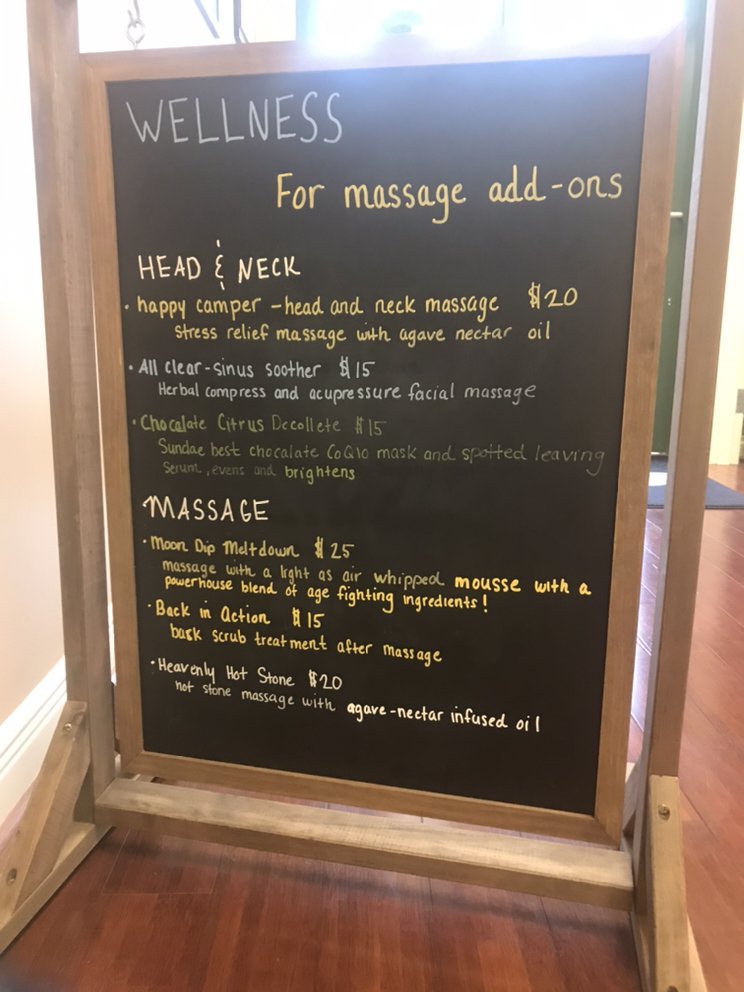 WELLNESS
For massage add-ons
HEAD & NECK
• happy camper - head and neck massage $20
stress relief massage with agave nectar oil
• All clear - sinus soother $15
Herbal compress and acupressure facial massage
• Chocolate Citrus Decollete $15
Sundae best chocolate CoQ10 mask and spotted leaving
Serum, evens and brightens
MASSAGE
• Moon Dip Meltdown $25
massage with a light as air whipped mousse with a
powerhouse blend of age fighting ingredients!
• Back in Action $15
back scrub treatment after massage
• Heavenly Hot Stone $20
hot stone massage with agave-nectar infused oil